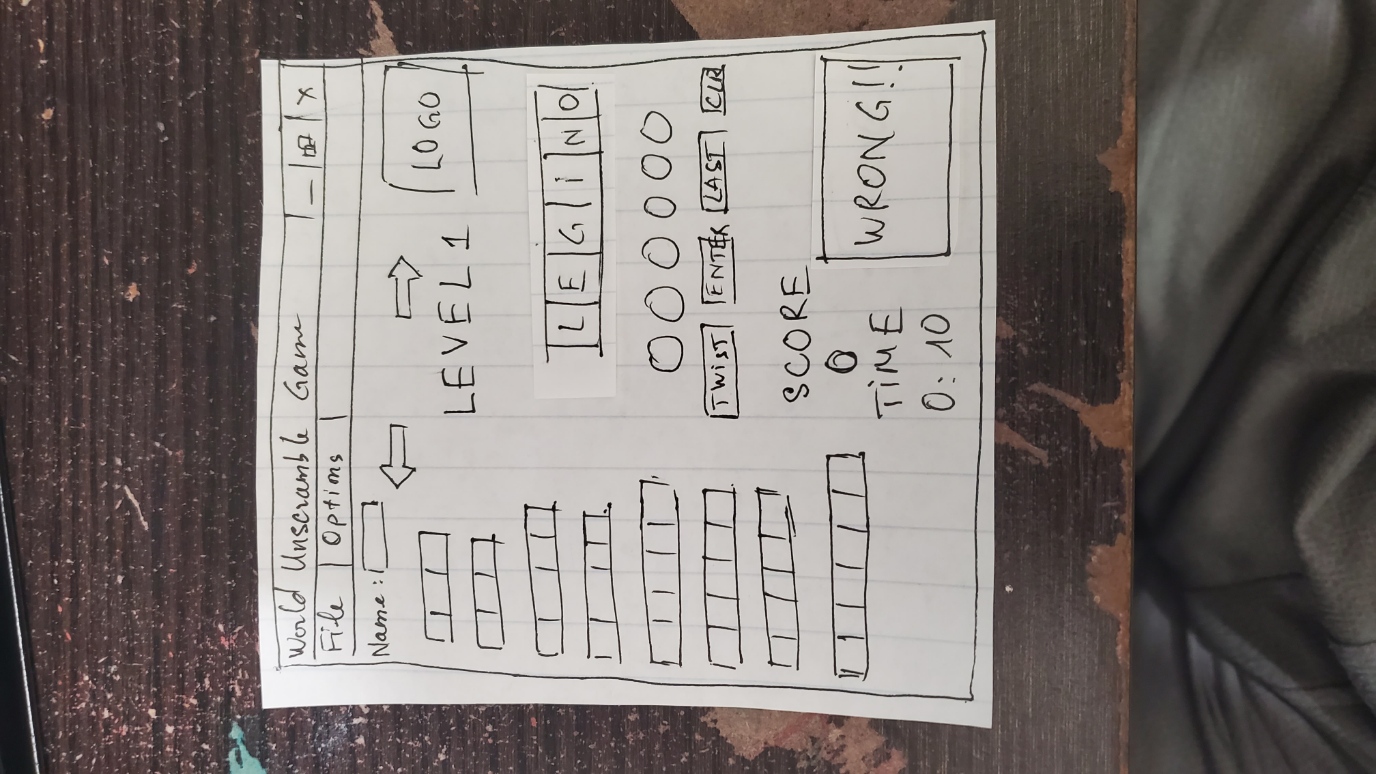 World Unscramble Game _ x
File Options
Name:
LOGO
LEVEL 1
L E G i N O
TWiST ENTER LAST CLR
SCORE
0
TiME
0:10
WRONG!!